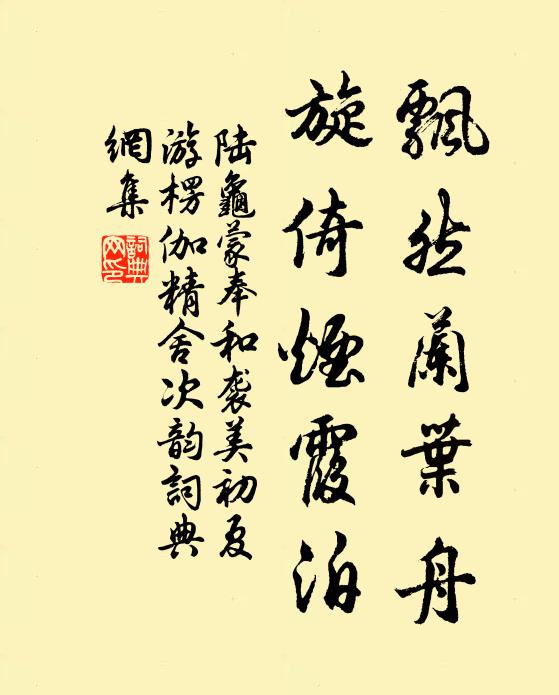 飄然蘭葉舟
旋倚煙霞泊
陆龜蒙奉和袭美初夏
游楞伽精舍次韵詞典
網集
詞典
网印